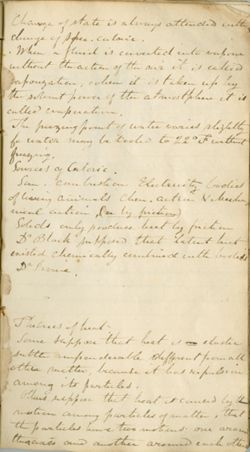 Change of state is always attended with
change of spec. caloric.
. When a fluid is converted into vapor
without the action of the air it is called
vaporization, when it is taken up by
the solvent power of the atmosphere it is
called evaporation.
The freezing point of water varies slightly
for water may be cooled to 22° F without
freezing.
Sources of Caloric.
Sun. Combustion Electricity bodies
of living animals Chem. action & Mechan
ical action (or by friction)
Solids only produce heat by friction
Dr Black supposed that latent heat
existed chemically combined with bodies
Dr
Theories of heat.
Some suppose that heat is an elastic
subtle imponderable different from all
other matter, because it has repulsion
among its particles.
Others suppose that heat is caused by the
motion among particles of matter, that
the particles have two motions: one around
and another around each other